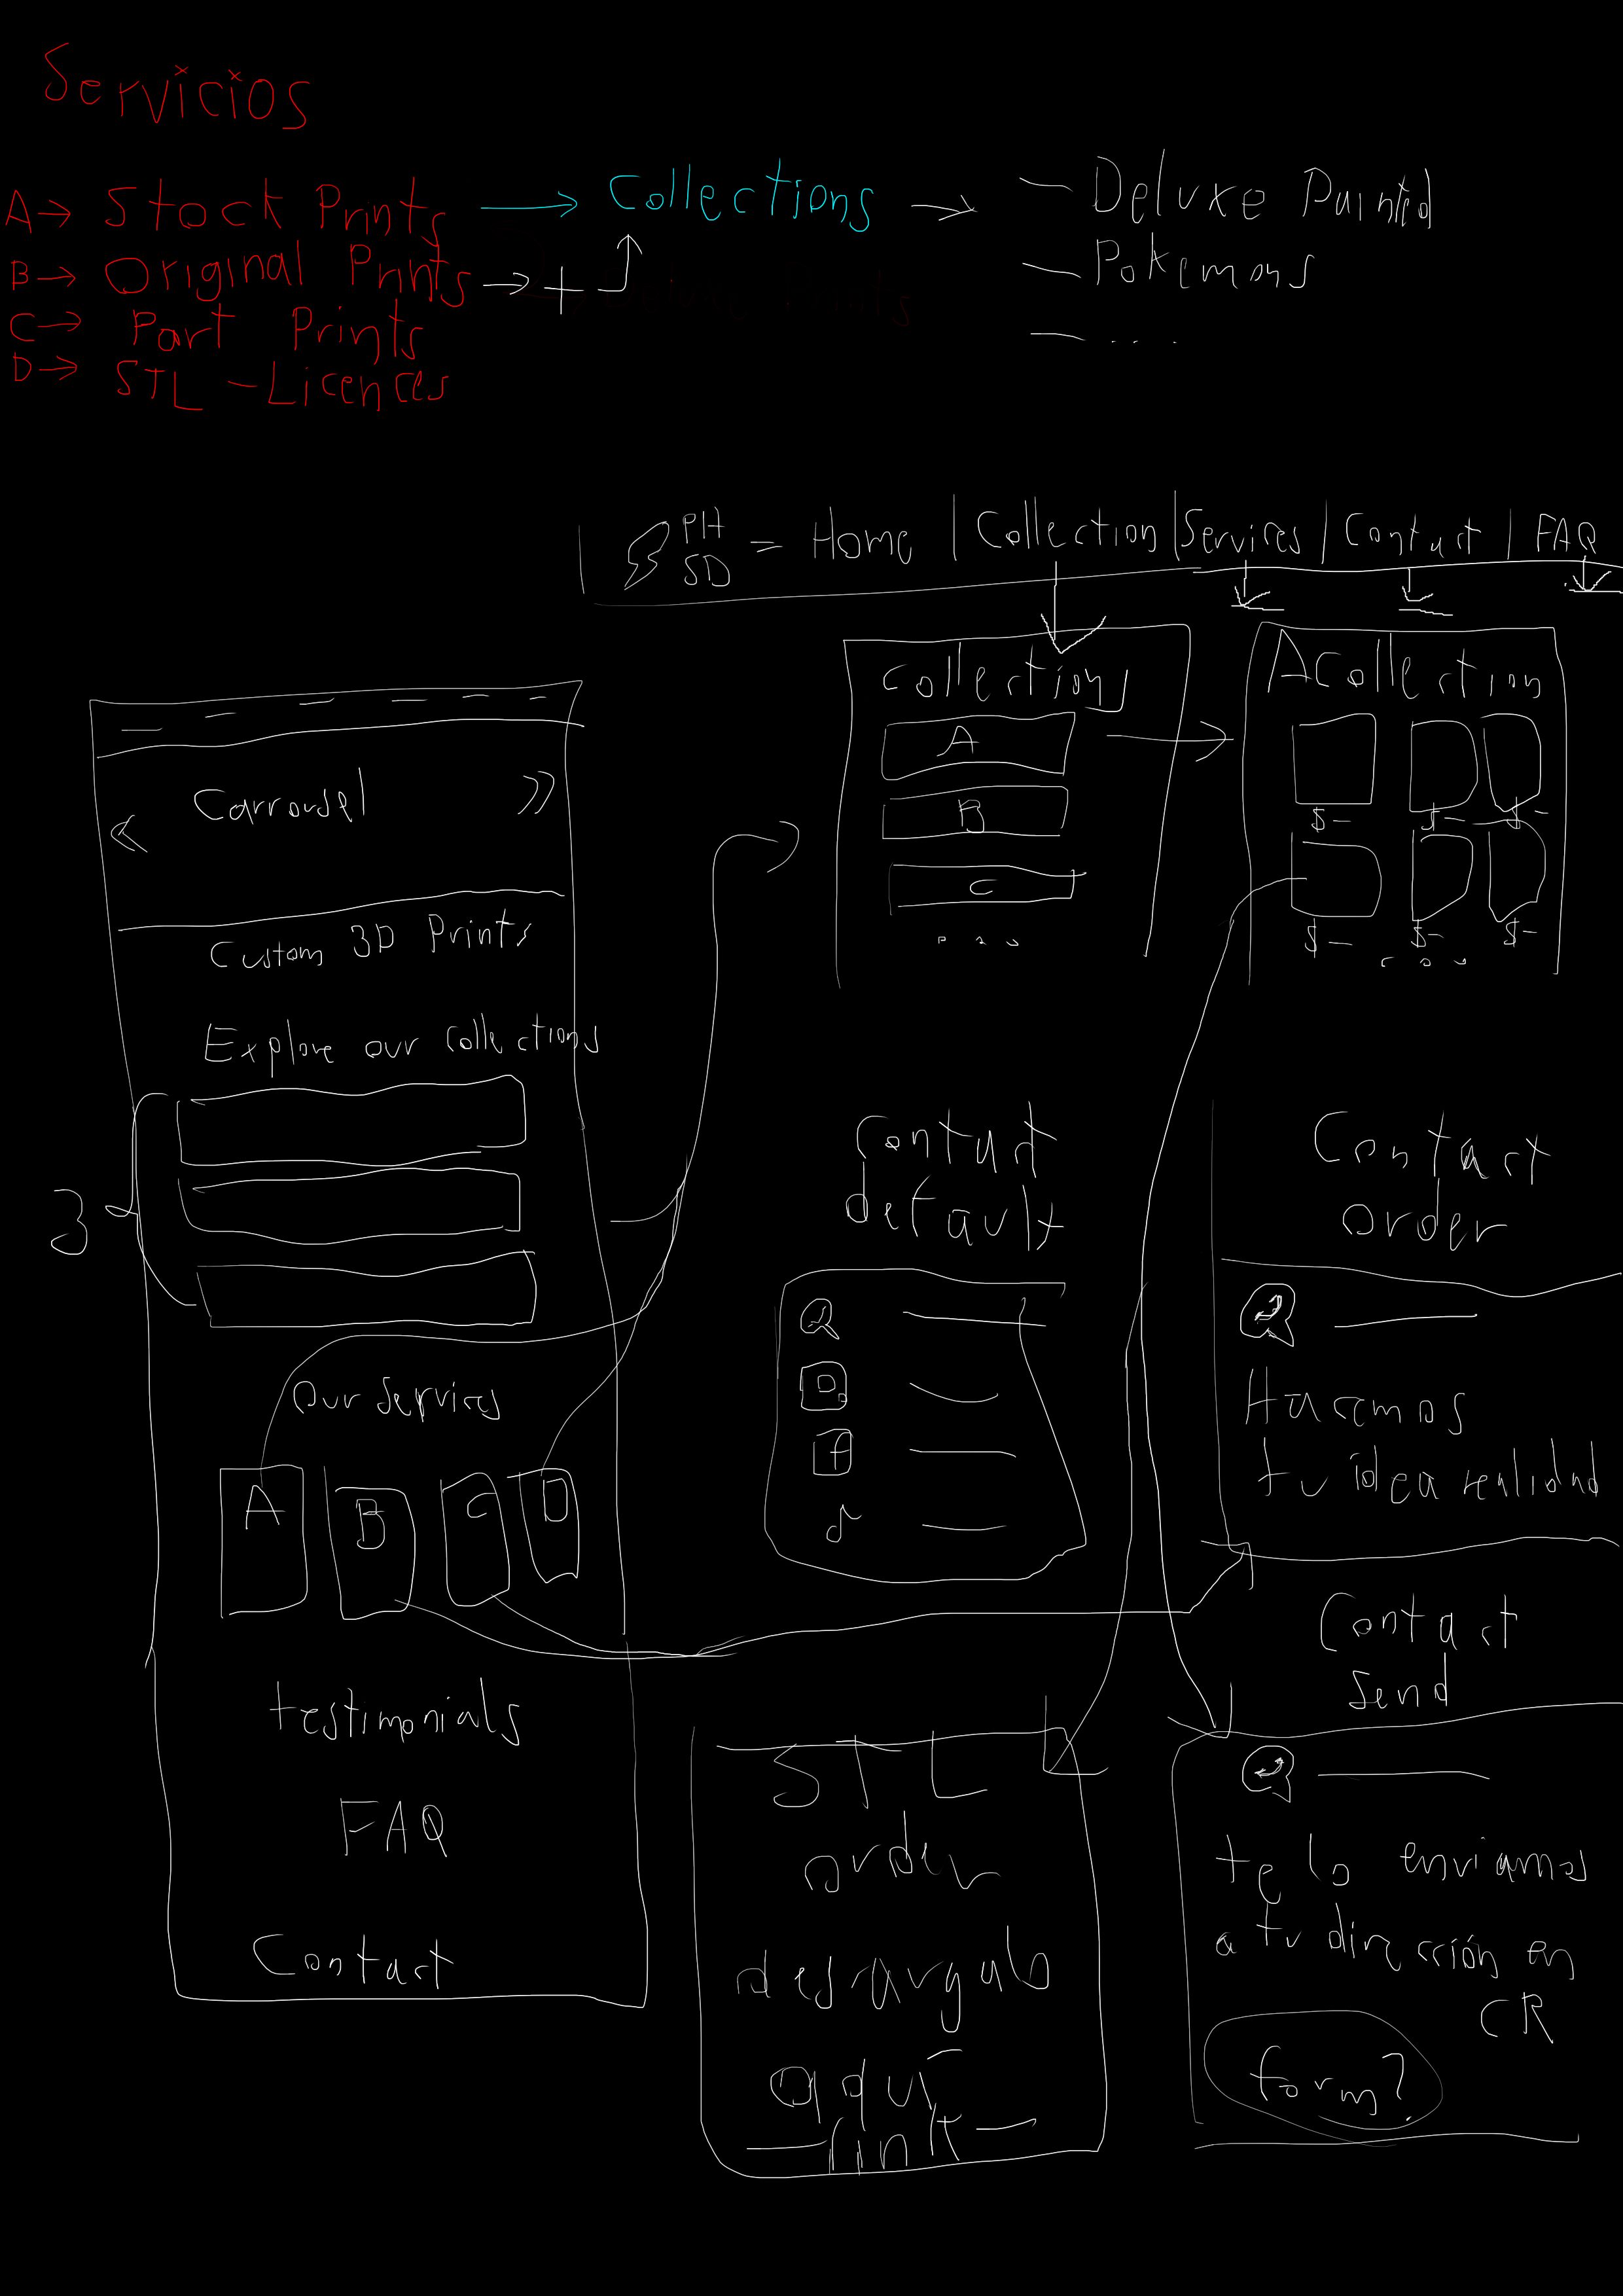 Servicios
A→ Stock Prints → Collections → — Deluxe Painted
B→ Original Prints → + — Pokemons
C→ Part Prints — ....
D→ STL - Licences
PH
3D = Home | Collection | Services | Contact | FAQ
Collections
A
B
C
...
A Collection
$- $- $-
$- $- $-
...
« Carrousel »
Custom 3D Prints
Explore our collections
3
Our Services
A B C D
testimonials
FAQ
Contact
Contact
default
f
Contact
order
Hacemos
tu idea realidad
Contact
Send
te lo enviamos
a tu dirección en
CR
form?
STL
order
descargalo
aquí
—link—